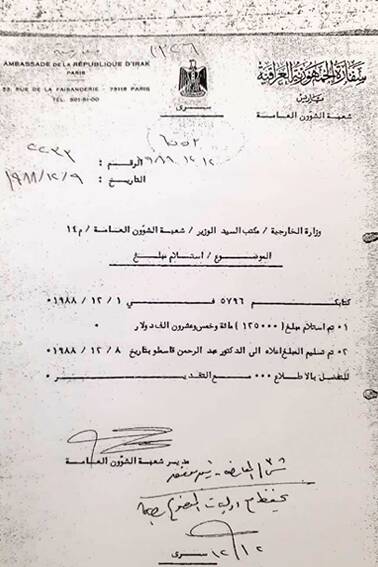 AMBASSADE DE LA RÉPUBLIQUE D'IRAK
PARIS
53, RUE DE LA FAISANDERIE - 75116 PARIS
TEL. 501-51-00
سفارة الجمهورية العراقية
باريس
شعبة الشؤون العامة
سرى
٦٥٥٢
١٩٨٨ ١٢ ١٢
الرقم : ٢٢٣٣
التاريخ : ١٩٨٨/١٢/٩
وزارة الخارجية / مكتب السيد الوزير / شعبة الشؤون العامة / م ١٤
الموضوع / استلام مبلغ
كتابكم ٥٧٩٦ في ١ / ١٢ / ١٩٨٨
١• تم استلام مبلغ (١٢٥٠٠٠) مائة وخمس وعشرون الف دولار •
٢• تم تسليم المبلغ اعلاه الى الدكتور عبد الرحمن قاسملو بتاريخ ٨ / ١٢ / ١٩٨٨
للتفضل بالاطلاع ••• مع التقدير •
مدير شعبة الشؤون العامة
يحفظ مع اوليات الموضوع
١٢/١٢
سرى